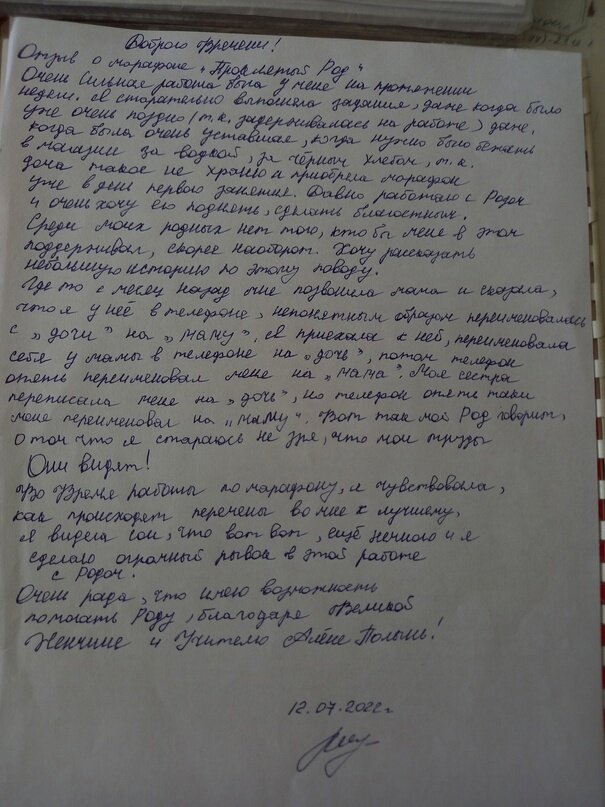 Доброго Времени!
Отзыв о марафоне „Проклятый Род"
Очень сильная работа была у меня на протяжении
недели. Я старательно выполняла задания, даже когда было
уже очень поздно (т.к. задерживалась на работе) даже,
когда была очень уставшая, когда нужно было бежать
в магазин за водкой, за чёрным хлебом, т.к.
дома такое не храню и приобрела марафон
уже в день первого занятия. Давно работаю с Родом
и очень хочу его поднять, сделать благостным.
Среди моих родных нет того, кто бы меня в этом
поддерживал, скорее наоборот. Хочу рассказать
небольшую историю по этому поводу.
Где то с месяц назад мне позвонила мама и сказала,
что я у неё в телефоне, непонятным образом переименовалась
с „дочи" на „маму". Я приехала к ней, переименовала
себя у мамы в телефоне на „дочь", потом телефон
опять переименовал меня на „мама". Моя сестра
переписала меня на „дочь", но телефон опять таки
меня переименовал на „маму". Вот так мой Род говорит,
о том что я стараюсь не зря, что мои труды
Они видят!
Во Время работы по марафону, я чувствовала,
как происходят перемены во мне к лучшему,
я видела сон, что вот вот, ещё немного и я
сделаю огромный рывок в этой работе
с Родом.
Очень рада, что имею возможность
помогать Роду, благодаря Великой
Женщине и Учителю Алёне Полынь!
12.07.2022г